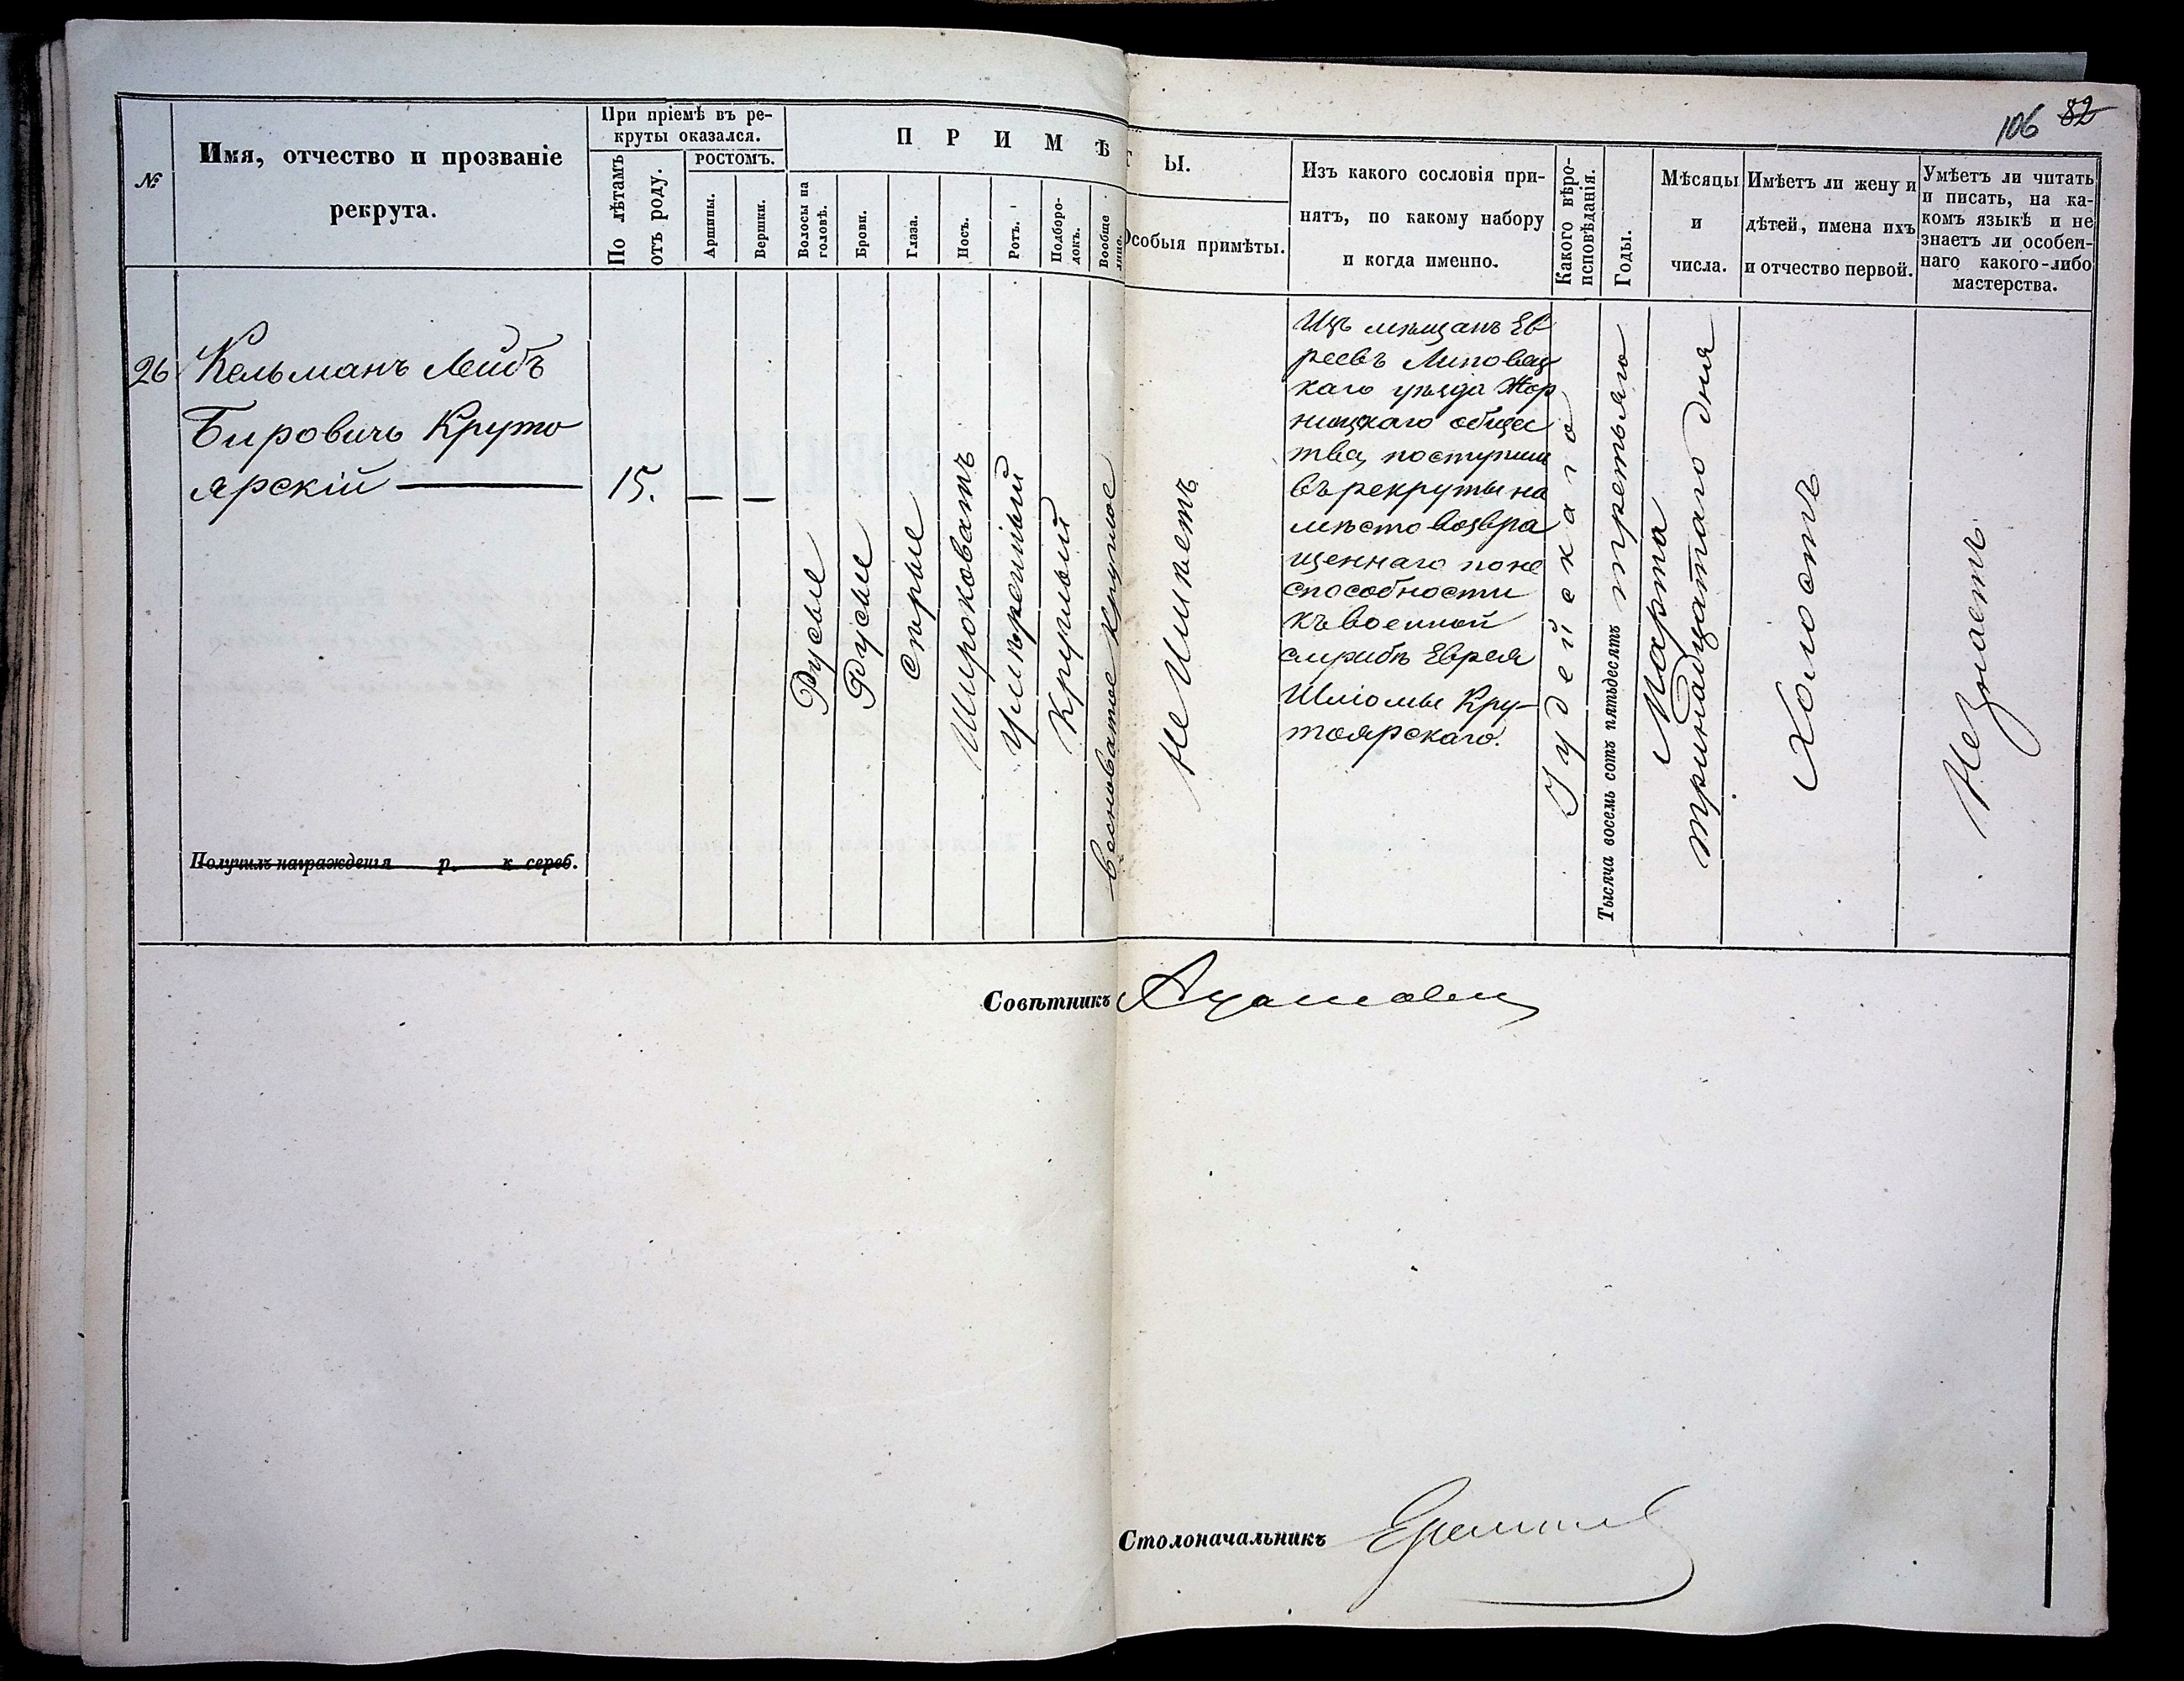 106 82
№
Имя, отчество и прозваніе
рекрута.
При пріемѣ въ ре-
круты оказался.
По лѣтамъ
отъ роду.
ростомъ.
Аршины.
Вершки.
ПРИМѢТЫ.
Волосы на
головѣ.
Брови.
Глаза.
Носъ.
Ротъ.
Подборо-
докъ.
Вообще
лице.
Особыя примѣты.
Изъ какого сословія при-
нятъ, по какому набору
и когда именно.
Какого вѣро-
исповѣданія.
Годы.
Мѣсяцы
и
числа.
Имѣетъ ли жену и
дѣтей, имена ихъ
и отчество первой.
Умѣетъ ли читать
и писать, на ка-
комъ языкѣ и не
знаетъ ли особен-
наго какого-либо
мастерства.
26
Кельманъ Лейбъ
Бировичъ Круто
ярскій
15.
— —
Русые
Русые
Сѣрые
Широковатъ
Умѣренный
Круглый
Весноватое круглое
Не Имѣетъ
Изъ мѣщанъ Ев
реевъ Липовец
каго уѣзда Жор
нищкаго общес
тва, поступил
въ рекруты на
мѣсто возвра
щеннаго по не
способности
къ военной
службѣ Еврея
Шліомы Кру-
тоярскаго.
Іудейскаго
Тысяча восемь сотъ пятьдесятъ третьяго
Марта
тринадцатаго дня
Холостъ
Не Знаетъ
Получилъ награжденія р. к. сереб.
Совѣтникъ
Столоначальникъ